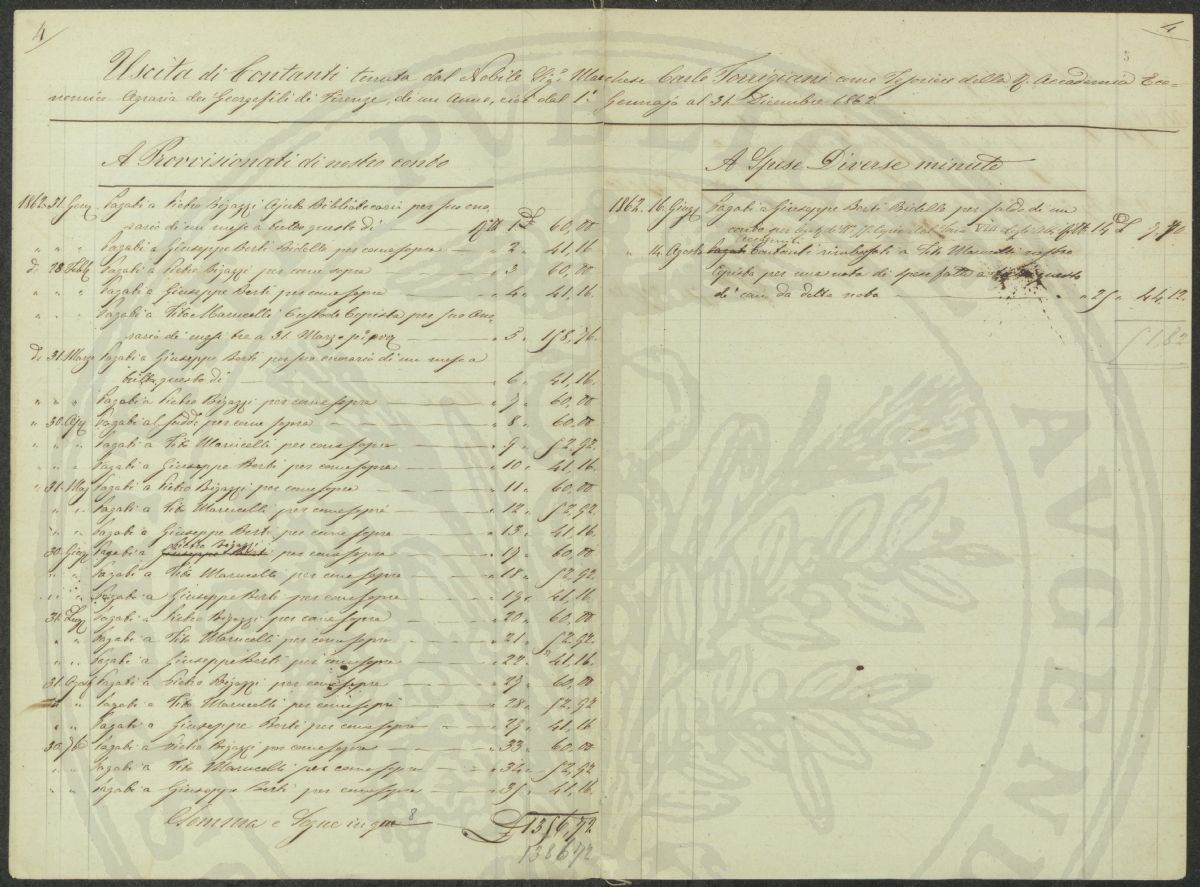 4
4
5
Uscita di Contanti tenuta dal Nobile Sigr Marchese Carlo Torrigiani come Tesoriere della R. Accademia Eco-
nomico Agraria dei Georgofili di Firenze, di un Anno, cioè dal 1° Gennajo al 31 Dicembre 1862.
A Provisionati di nostro conto
1862. 31. Genn Pagati a Pietro Bigazzi Ajuto Bibliotecario per suo ono-
rario di un mese a tutto questo dì 1 £ 60,00
" " " Pagati a Giuseppe Berti Bidello per come sopra " 2 " 41,16
di 28 Febb Pagati a Pietro Bigazzi per come sopra " 3 " 60,00
" " " Pagati a Giuseppe Berti per come sopra " 4 " 41,16.
" " " Pagati a Tito Marucelli Custode Copista per suo Ono-
rario di mesi tre a 31. Marzo " 5 " 158,76.
di 31. Marzo Pagati a Giuseppe Berti per suo onorario di un mese a
tutto questo dì " 6 " 41,16.
" " " Pagati a Pietro Bigazzi per come sopra " 7 " 60,00
" 30. Ap Pagati al sudd. per come sopra " 8 " 60.00
" " " Pagati a Tito Marucelli per come sopra " 9 " 52,92
" " " Pagati a Giuseppe Berti per come sopra " 10 " 41,16.
" 31. Mag Pagati a Pietro Bigazzi per come sopra " 11 " 60,00
" " Pagati a Tito Marucelli per come sopra " 12 " 52,92
" " Pagati a Giuseppe Berti per come sopra " 13 " 41,16.
30. Giug Pagati a Giuseppe Berti Pietro Bigazzi per come sopra " 17 " 60,00
" " Pagati a Tito Marucelli per come sopra " 18 " 52,92
" " Pagati a Giuseppe Berti per come sopra " 19 " 41,16
31. Lug Pagati a Pietro Bigazzi per come sopra " 20 " 60,00
" " Pagati a Tito Marucelli per come sopra " 21 " 52,92
" " Pagati a Giuseppe Berti per come sopra " 22 " 41,16.
31. Agos Pagati a Pietro Bigazzi per come sopra " 27 " 60,00
" " Pagati a Tito Marucelli per come sopra " 28 " 52,92
" " Pagati a Giuseppe Berti per come sopra " 29 " 41,16
30. 7b Pagati a Pietro Bigazzi per come sopra " 33 " 60,00
" " Pagati a Tito Marucelli per come sopra " 34 " 52,92
" " Pagati a Giuseppe Berti per come sopra " 35 " 41,16.
Somma e Segue in 8 £ 1356,72
1386,72
A Spese Diverse minute
1862. 16. Giug Pagati a Giuseppe Berti Bidello per saldo di un
conto per 14 £ 7,70
" 14. Agosto Contanti rimborsati a Tito Marucelli nostro
Copista per una nota di spese fatte a questo
dì come da detta nota " 25 " 44,12.
51,82
PVBLICAE
AVGEND